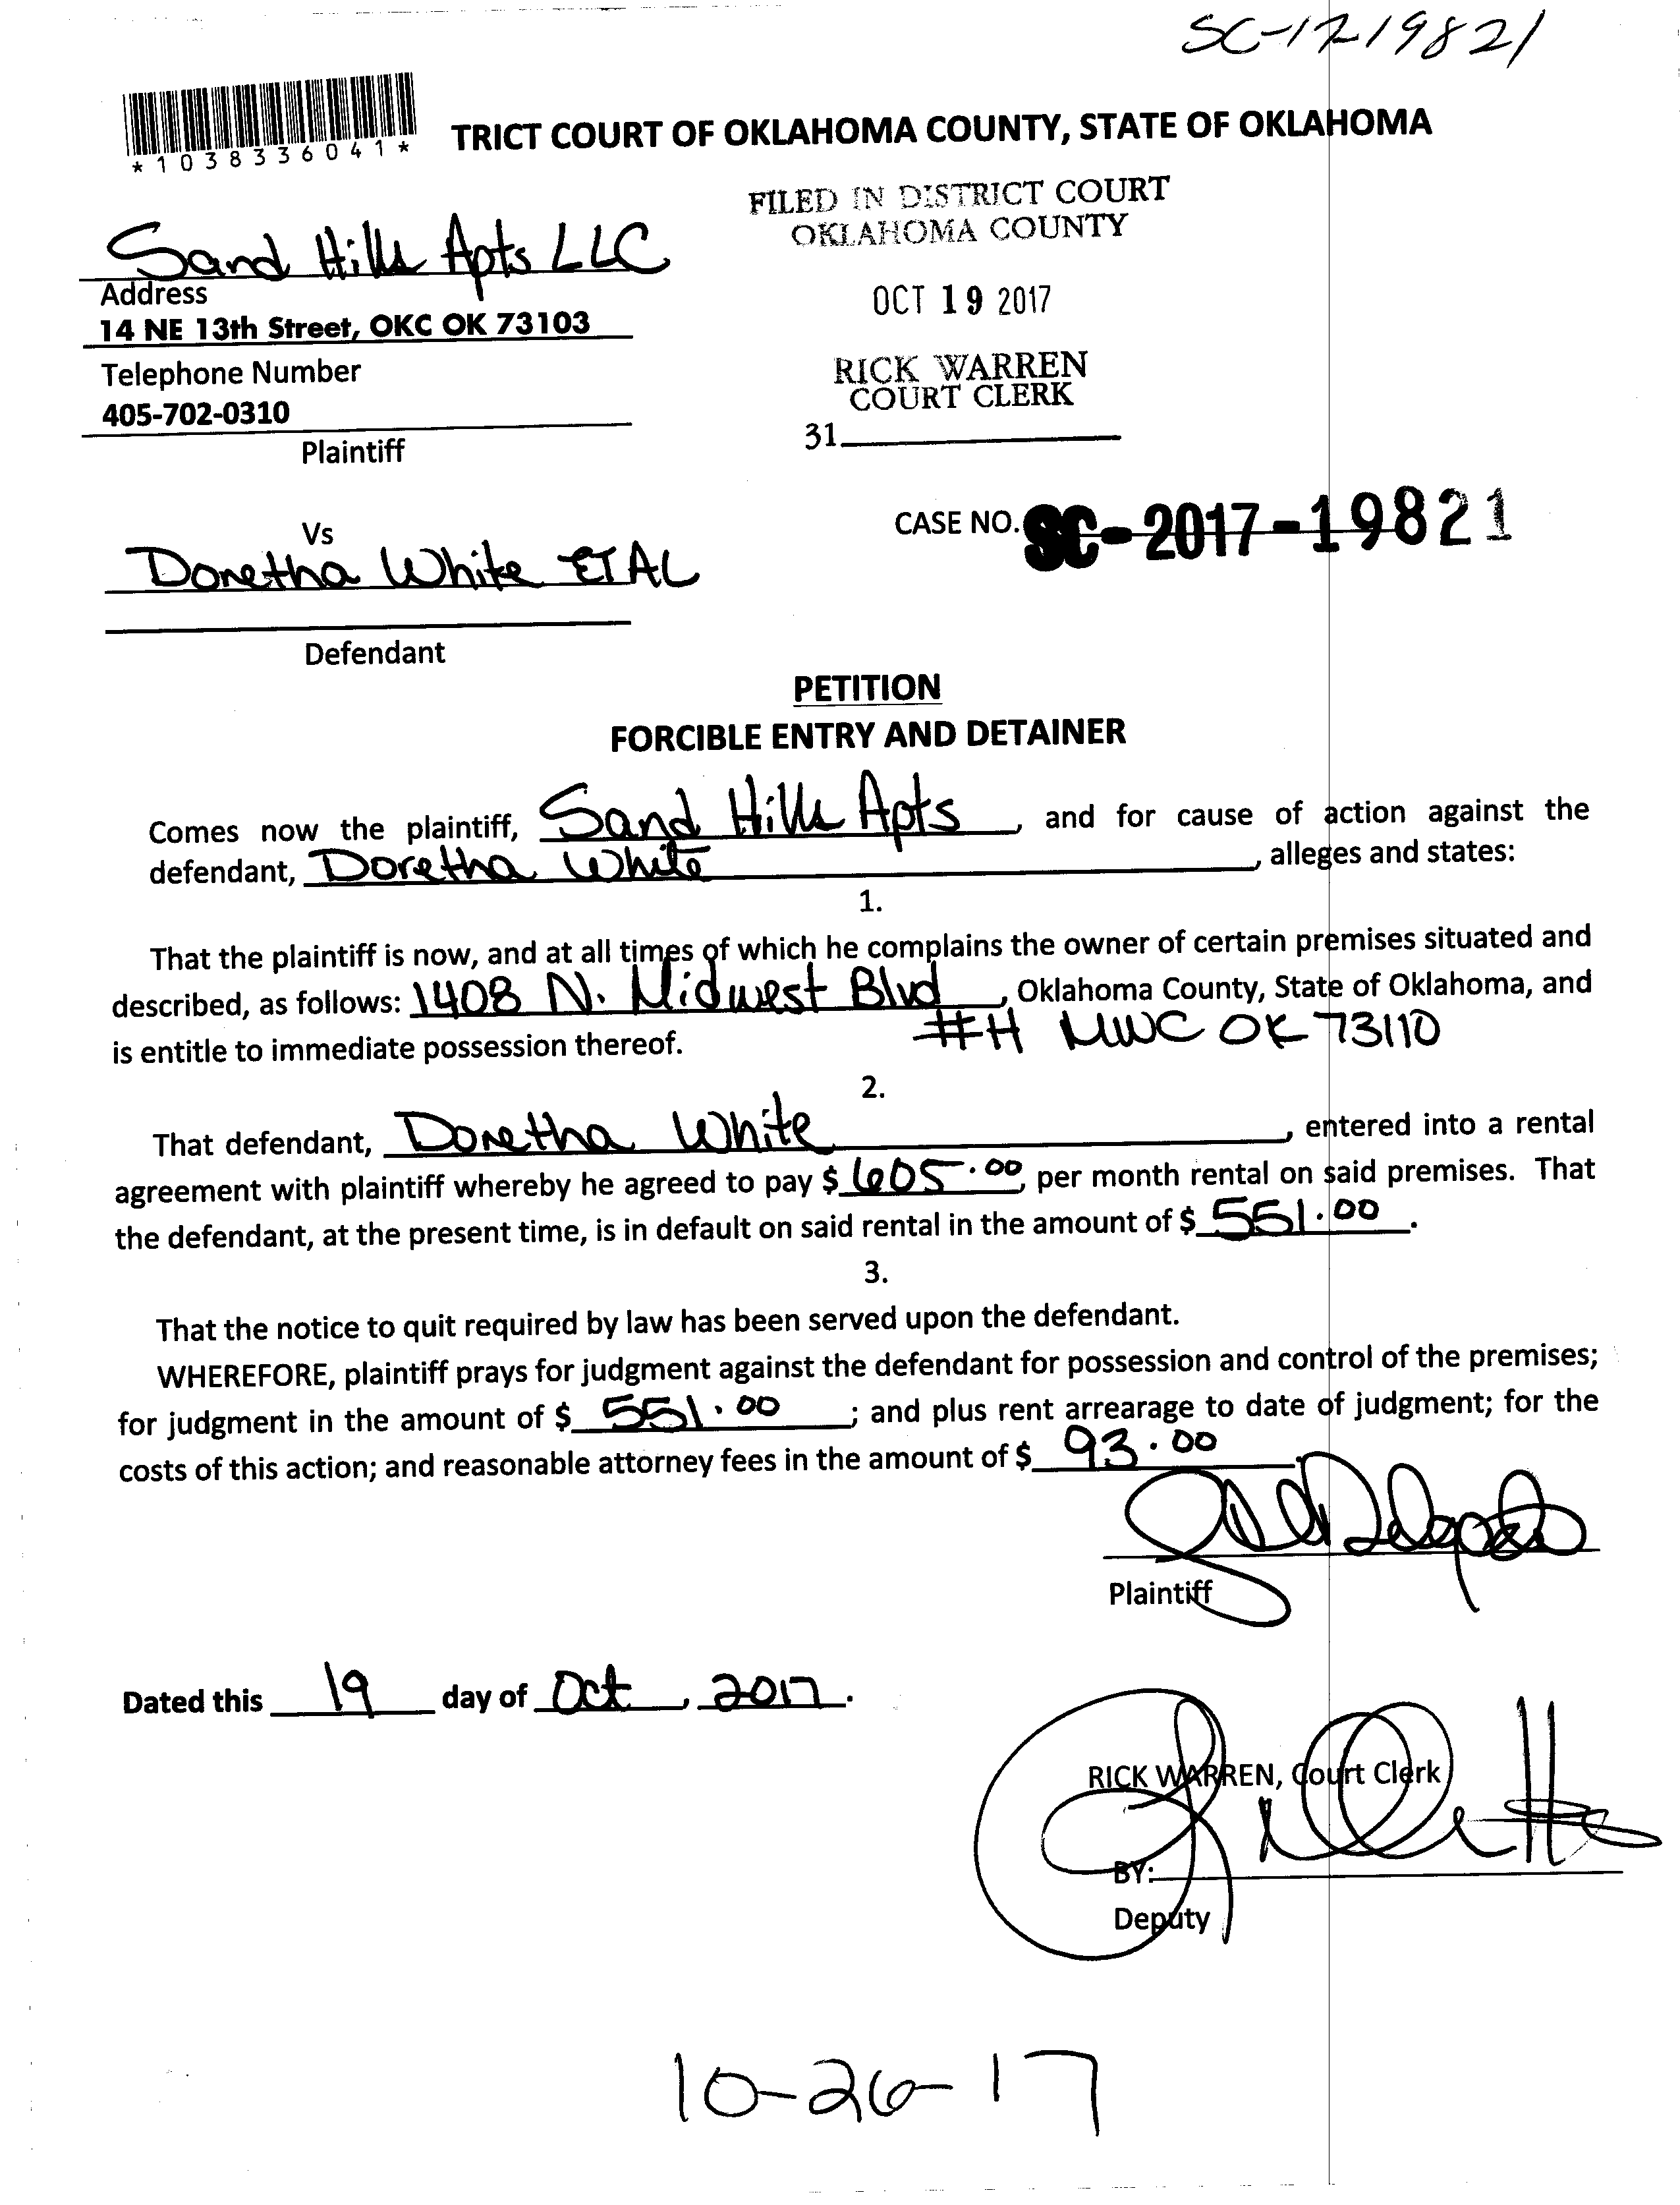 SC-17-19821
*1038336041*
TRICT COURT OF OKLAHOMA COUNTY, STATE OF OKLAHOMA
FILED IN DISTRICT COURT
OKLAHOMA COUNTY
Sand Hills Apts LLC
Address
14 NE 13th Street, OKC OK 73103
OCT 19 2017
Telephone Number
405-702-0310
RICK WARREN
COURT CLERK
31
Plaintiff
Vs
CASE NO. SC-2017-19821
Doretha White ET AL
Defendant
PETITION
FORCIBLE ENTRY AND DETAINER
Comes now the plaintiff, Sand Hills Apts, and for cause of action against the
defendant, Doretha White, alleges and states:
1.
That the plaintiff is now, and at all times of which he complains the owner of certain premises situated and
described, as follows: 1408 N. Midwest Blvd, Oklahoma County, State of Oklahoma, and
#H MWC OK 73110
is entitle to immediate possession thereof.
2.
That defendant, Doretha White, entered into a rental
agreement with plaintiff whereby he agreed to pay $ 605.00, per month rental on said premises. That
the defendant, at the present time, is in default on said rental in the amount of $ 551.00.
3.
That the notice to quit required by law has been served upon the defendant.
WHEREFORE, plaintiff prays for judgment against the defendant for possession and control of the premises;
for judgment in the amount of $ 551.00; and plus rent arrearage to date of judgment; for the
costs of this action; and reasonable attorney fees in the amount of $ 93.00
Plaintiff
Dated this 19 day of Oct, 2017.
RICK WARREN, Court Clerk
BY:
Deputy
10-26-17